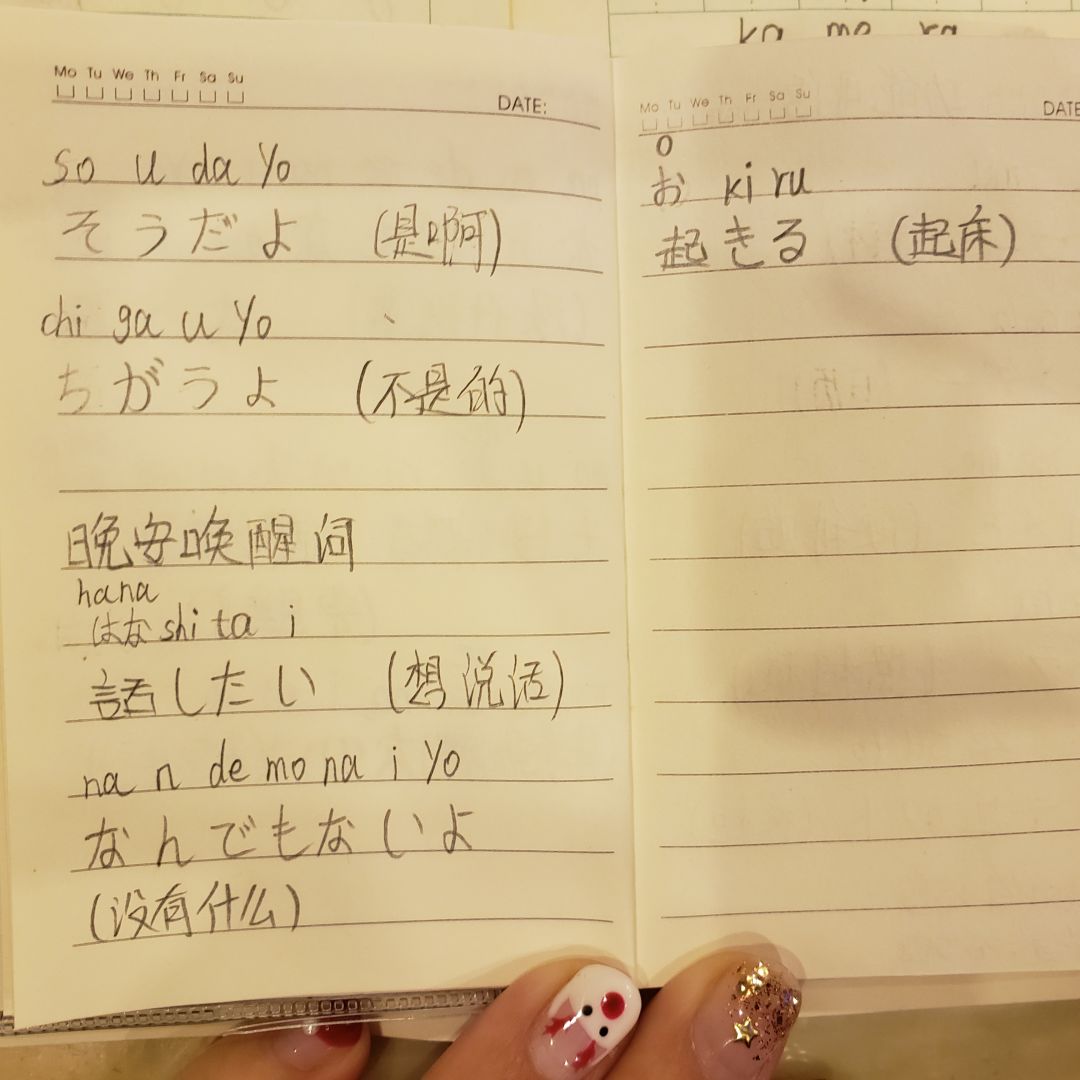 Mo Tu We Th Fr Sa Su
DATE:
so u da yo
そうだよ (是啊)
chi ga u yo
ちがうよ (不是的)
晚安唤醒词
hana
はな shi ta i
話したい (想说话)
na n de mo na i yo
なんでもないよ
(没有什么)
ka mo ra
Mo Tu We Th Fr Sa Su
DATE
o
お ki ru
起きる (起床)